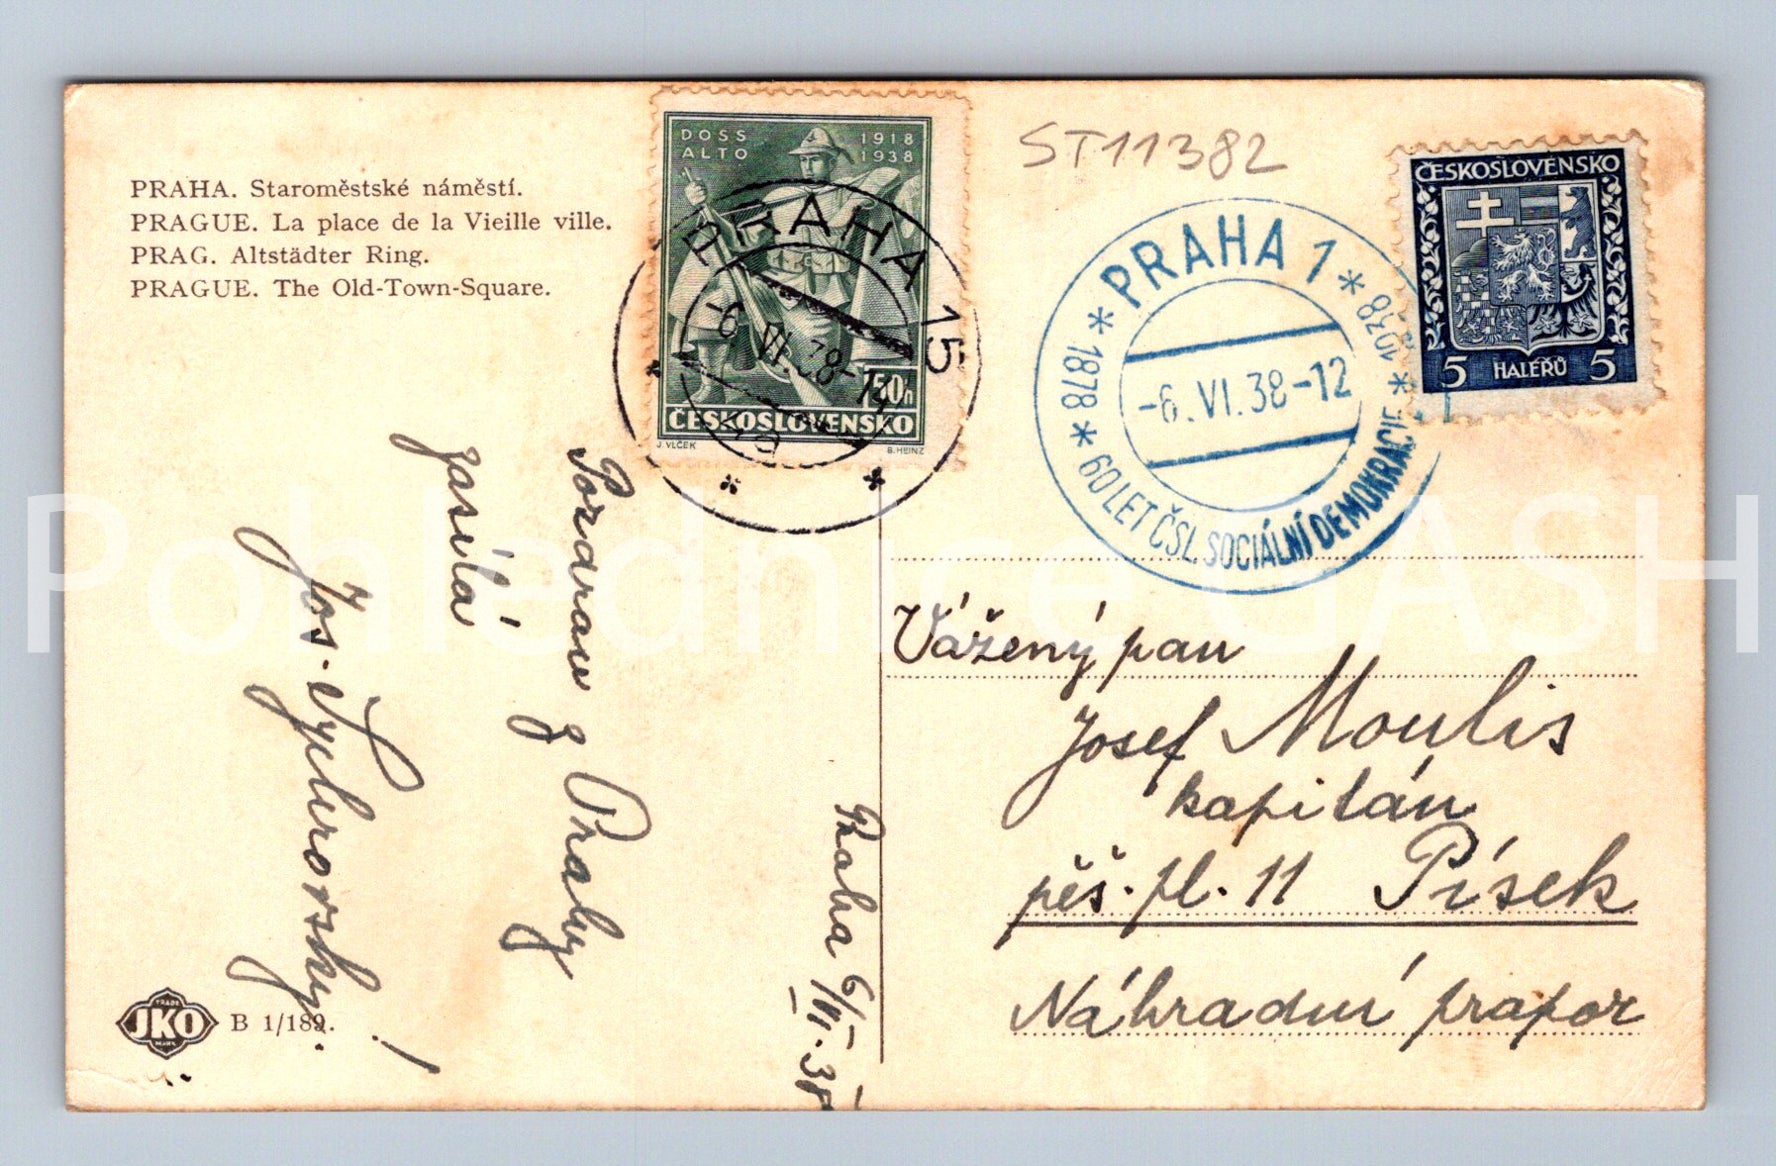 PRAHA. Staroměstské náměstí.
PRAGUE. La place de la Vieille ville.
PRAG. Altstädter Ring.
PRAGUE. The Old-Town-Square.
DOSS
ALTO
1918
1938
50h
ČESKOSLOVENSKO
J. VLČEK
B. HEINZ
PRAHA 15
-6.VI.38-14
ST11382
* PRAHA 1 *
* 1878 * 60 LET ČSL. SOCIÁLNÍ DEMOKRACIE * 1938
-6.VI.38-12
ČESKOSLOVENSKO
5 HALÉŘŮ 5
Praha 6/VI.38
Pozdrav z Prahy
zasílá
Jos.
Vážený pan
Josef Moulis
kapitán
pěš. pl. 11 Písek
Náhradní prapor
TRADE
JKO
MARK
B 1/189.
Pohlednice GASH